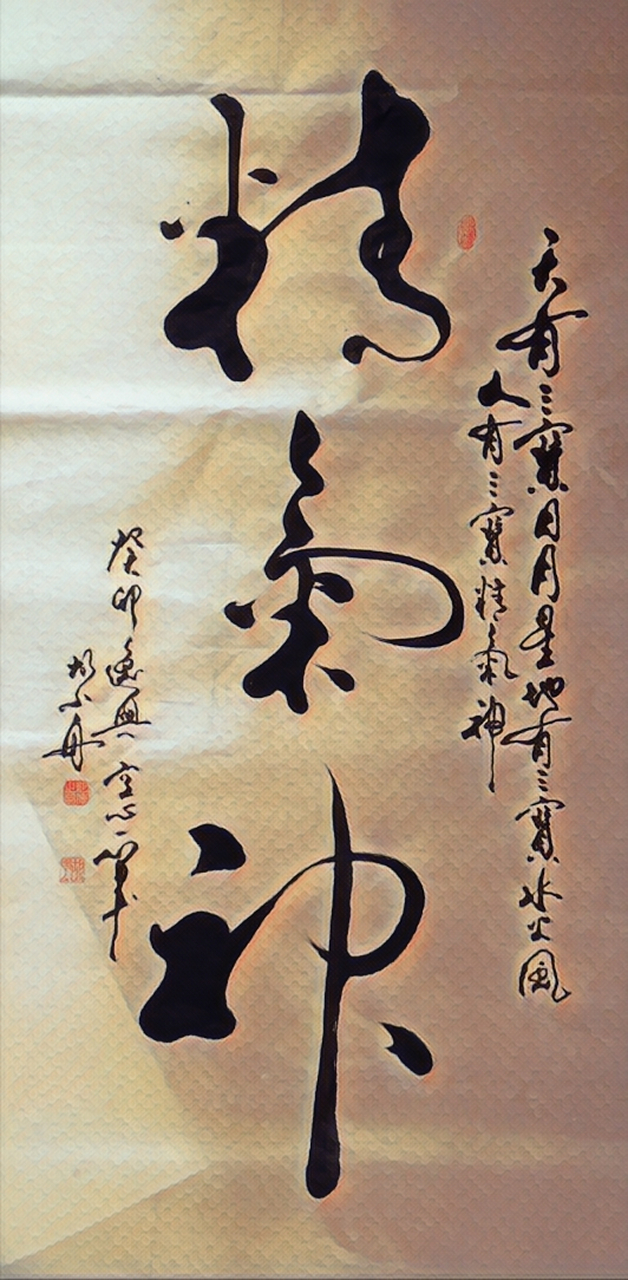 天有三寶日月星地有三寶水火風
人有三寶精氣神
精氣神
癸卯逸興空心一筆